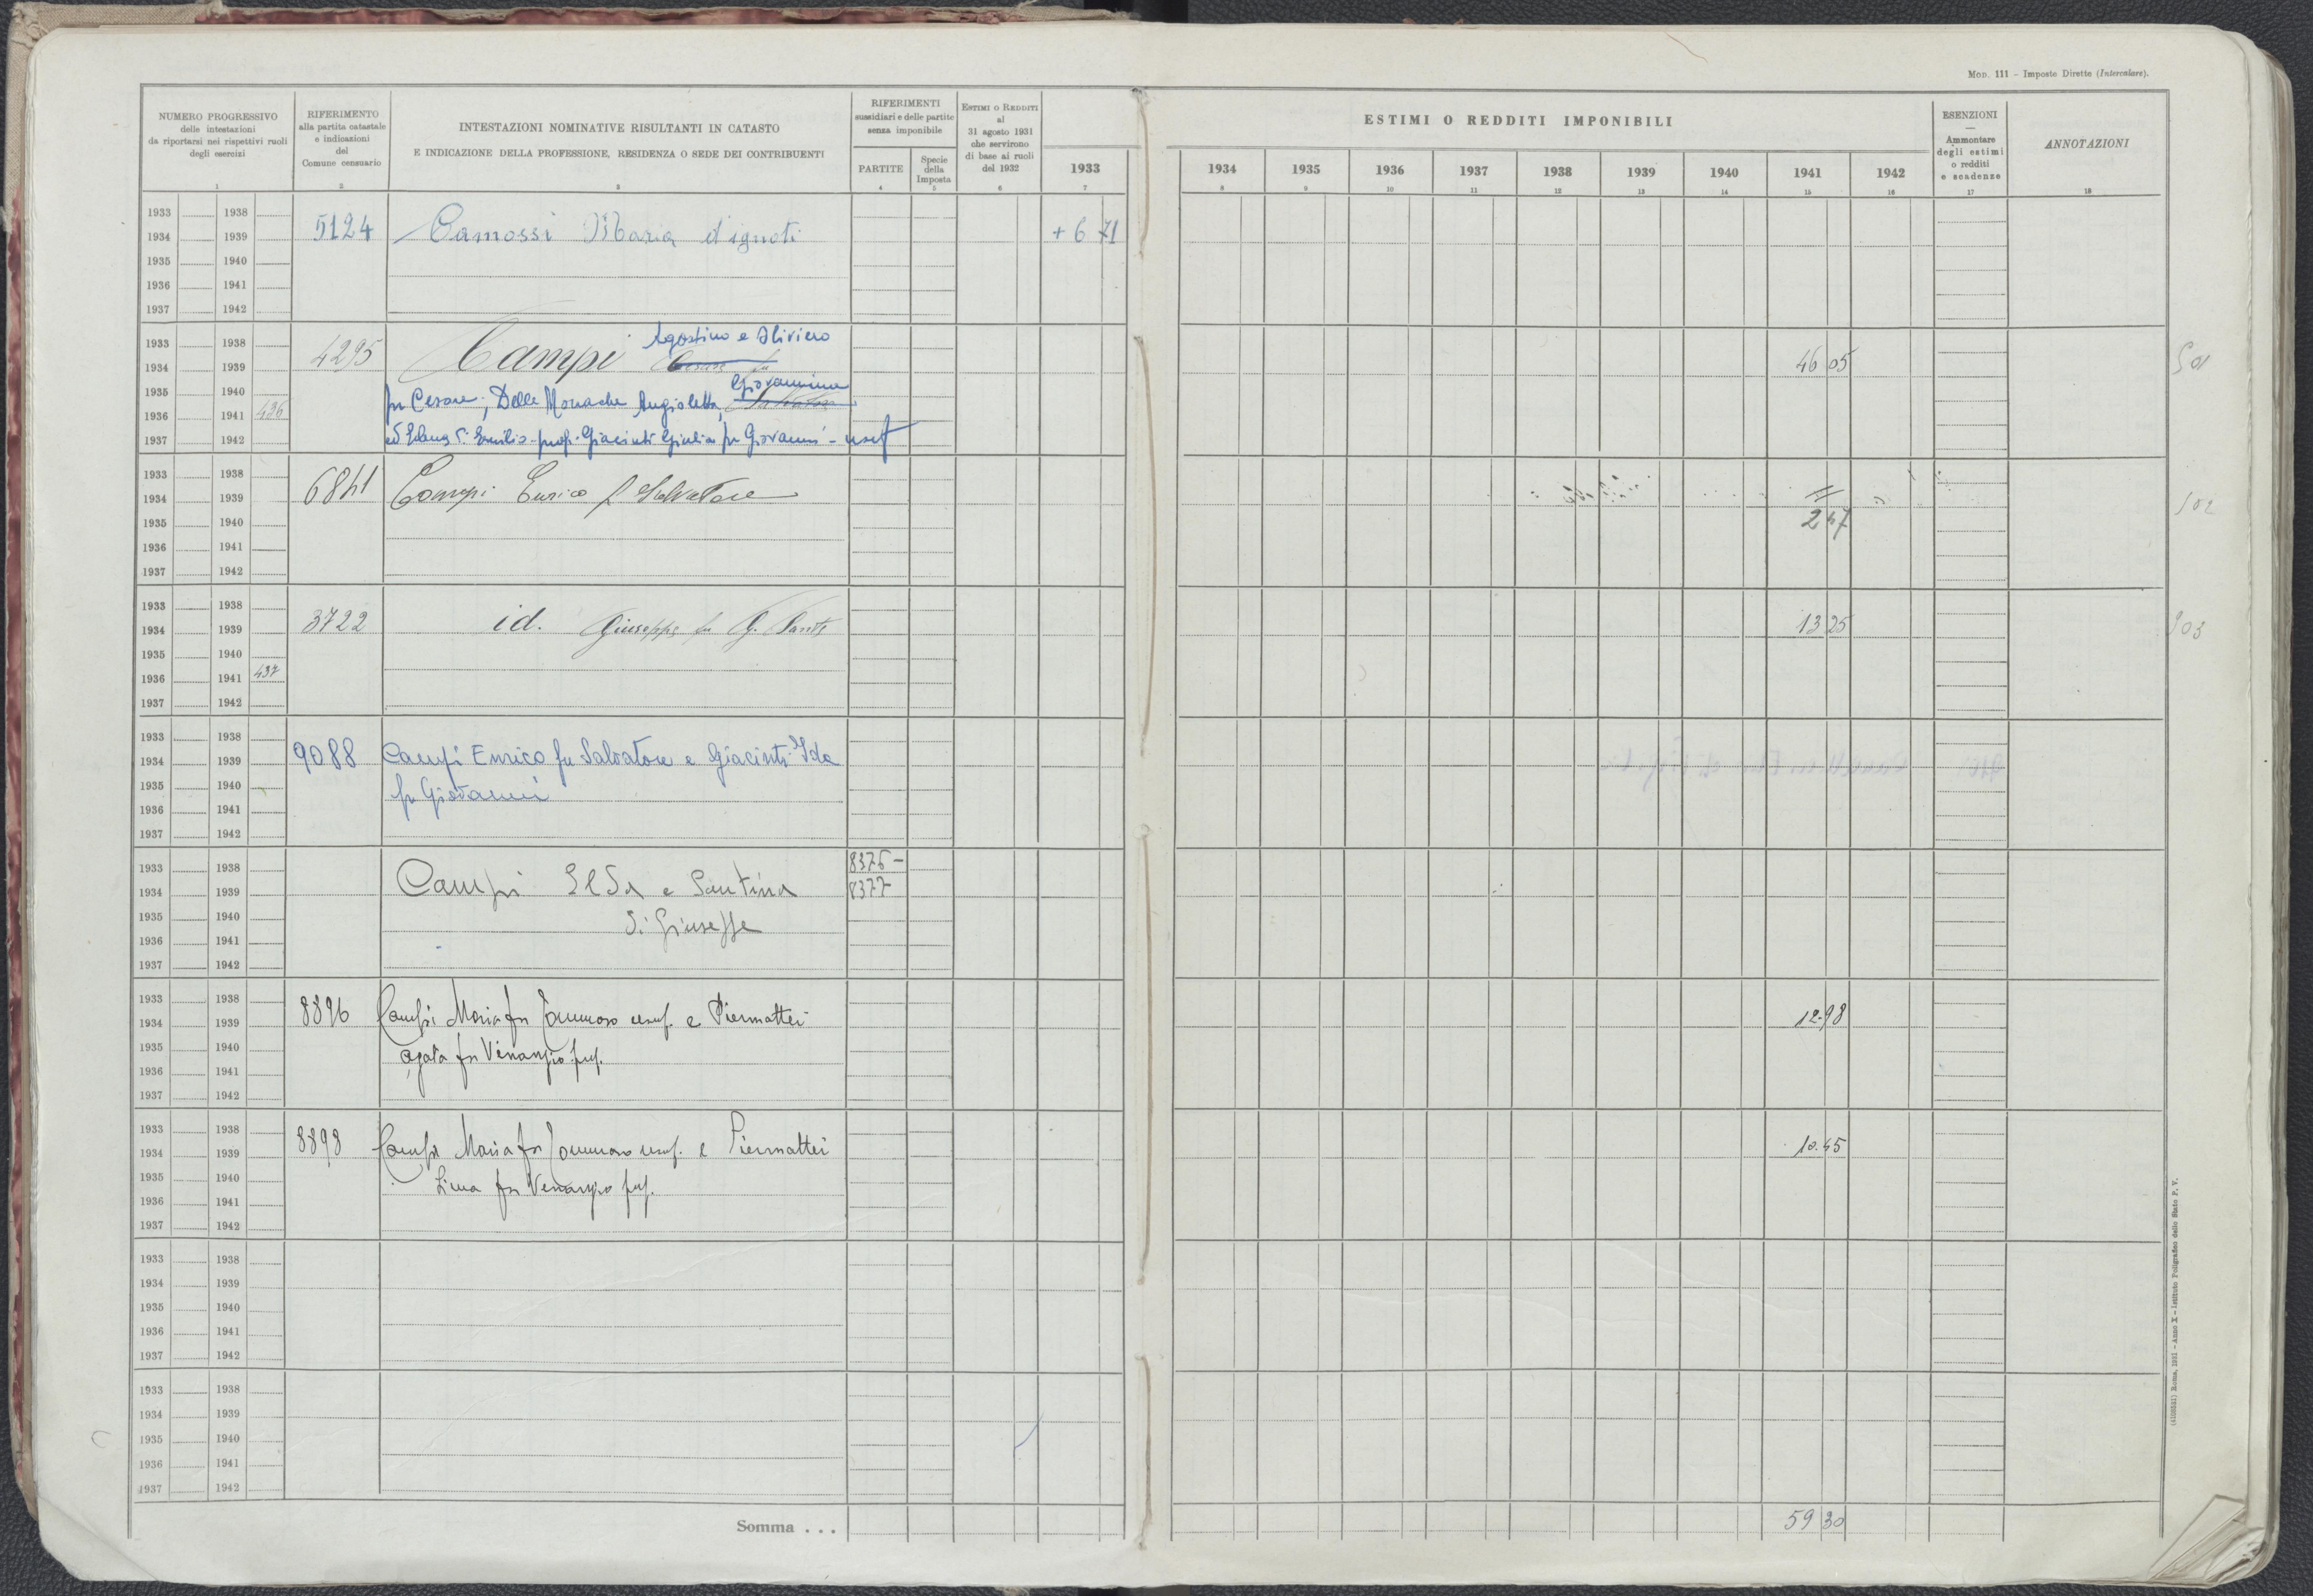 Mod. 111 - Imposte Dirette (Intercalare).
NUMERO PROGRESSIVO
delle intestazioni
da riportarsi nei rispettivi ruoli
degli esercizi
1
RIFERIMENTO
alla partita catastale
e indicazioni
del
Comune censuario
2
INTESTAZIONI NOMINATIVE RISULTANTI IN CATASTO
E INDICAZIONE DELLA PROFESSIONE, RESIDENZA O SEDE DEI CONTRIBUENTI
3
RIFERIMENTI
sussidiari e delle partite
senza imponibile
PARTITE
4
Specie
della
Imposta
5
ESTIMI O REDDITI
al
31 agosto 1931
che servirono
di base ai ruoli
del 1932
6
1933
7
ESTIMI O REDDITI IMPONIBILI
1934 1935 1936 1937 1938 1939 1940 1941 1942
8 9 10 11 12 13 14 15 16
ESENZIONI
—
Ammontare
degli estimi
o redditi
e scadenze
17
ANNOTAZIONI
18
1933 1938
1934 1939 5124 Camossi Maria d'ignoti + 6 71
1935 1940
1936 1941
1937 1942
1933 1938 Agostino e Oliviero
1934 1939 4295 Campi Cesare fu 46 05
1935 1940 Giovannina
fu Cesare; Delle Monache Angioletta, Salvatore
1936 1941 436
1937 1942 ed Edana di Emilio - prop. Giacinti Giulia fu Giovanni - usuf
1933 1938
1934 1939 6841 Campi Enrico f Salvatore 102
1935 1940 2 47
1936 1941
1937 1942
1933 1938
1934 1939 3722 id. Giuseppe fu G. Sante 13 25
1935 1940
1936 1941 437
1937 1942
1933 1938
1934 1939 9088 Campi Enrico fu Salvatore e Giacinti Ida
1935 1940 fu Giovanni
1936 1941
1937 1942
1933 1938 8376 -
1934 1939 Campi Elda e Santina 8377
1935 1940 di Giuseppe
1936 1941
1937 1942
1933 1938
1934 1939 8896 Campi Maria fu Tommaso usuf. e Piermattei 12.98
1935 1940 Agata fu Venanzio prop.
1936 1941
1937 1942
1933 1938
1934 1939 8898 Campi Maria fu Tommaso usuf. e Piermattei 10.45
1935 1940 Lina fu Venanzio prop.
1936 1941
1937 1942
1933 1938
1934 1939
1935 1940
1936 1941
1937 1942
1933 1938
1934 1939
1935 1940
1936 1941
1937 1942
Somma . . . 59 30
(4108551) Roma, 1931 - Anno X - Istituto Poligrafico dello Stato P. V.